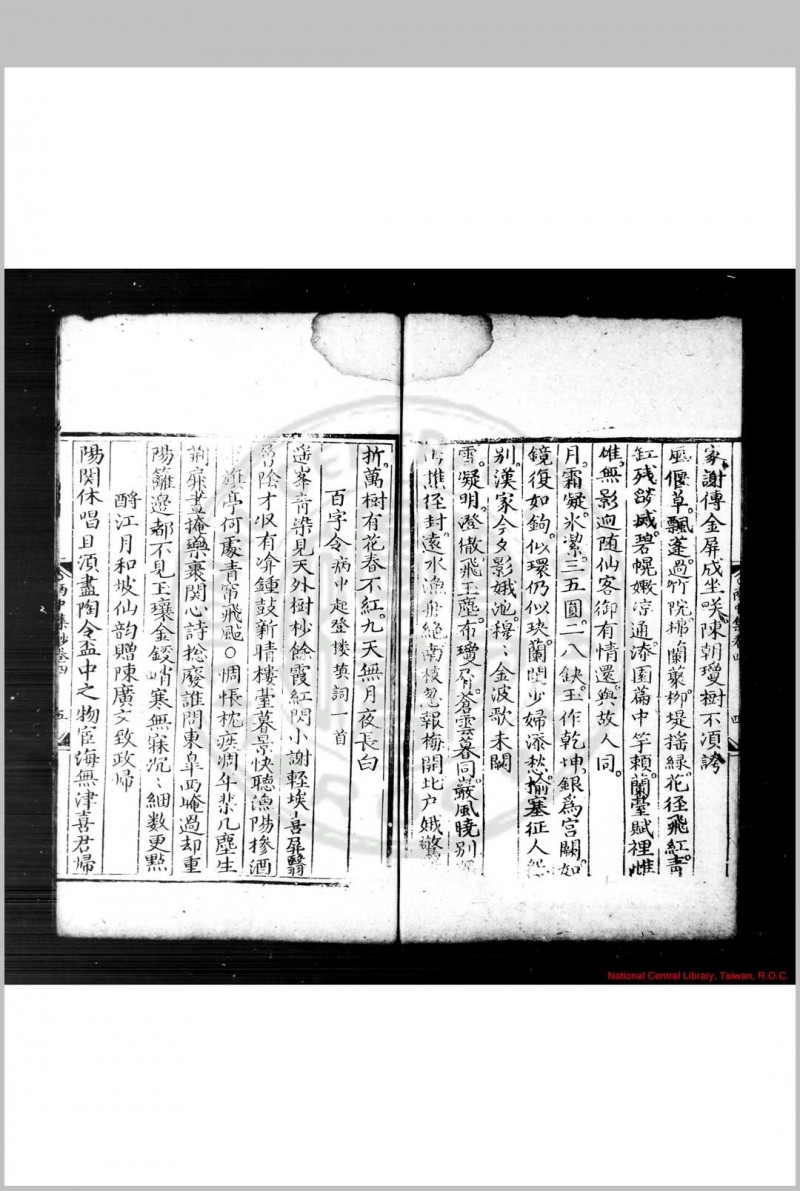 家謝傅金屏成坐咲陳朝瓊樹不須誇
風偃草飄蓬過竹院棉蘭蕖柳堤搖綠花徑飛紅青
缸殘燄威碧幌嫩涼通流園篇中竽頼蘭臺賦裡雌
雄無影逈随仙客御有情還與故人同
月霜凝氷潔三五圓二八缺玉作乾坤銀為宫闕如
鏡復如鉤似環仍似玦蘭閨少婦添愁揄塞征人怨
別漢家今夕影娥池穆〻金波歌未闋
雪凝明澄徹飛玉塵布瓊屑蒼雲暮同嚴風曉別
樵徑封遠水漁舟絶南枝忽報梅開北户娥驚
折萬樹有花春不紅九天無月夜長白
百字令病中起登楼填詞一首
遥峯青染見天外樹杪餘霞紅閃小謝輕埃喜屏翳
層陰才収有渰鍾鼓新晴楼臺暮景快聽漁陽摻酒
旗亭何處青帘飛颭〇惆悵枕疾凋年棐几塵生
荊扉晝掩藥裹関心詩捴廢誰問東皐西崦過却重
陽籬邉都不見玉瓖金錽峭寒無寐沉〻細数更點
酹江月和坡仙韵贈陳廣文致政歸
陽関休唱且須盡陶令盃中之物宦海無津喜君歸
四
五
National Central Library, Taiwan, R.O.C.